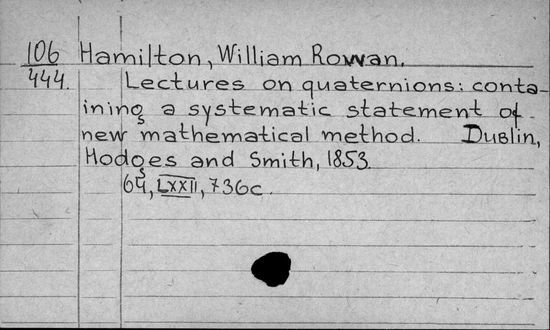 106 Hamilton, William Rowan.
444. Lectures on quaternions: conta-
ining a systematic statement of
new mathematical method. Dublin,
Hodges and Smith, 1853.
64, LXXII, 736c.